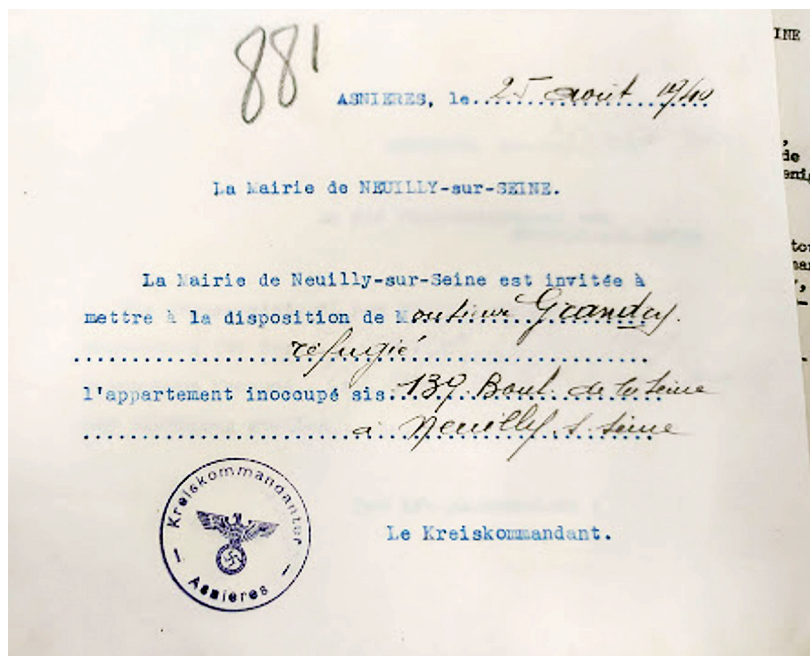 881
ASNIERES, le..25 août 1940
La Mairie de NEUILLY-sur-SEINE.
La Mairie de Neuilly-sur-Seine est invitée à
mettre à la disposition de Monsieur
réfugié
l'appartement inoccupé sis. 139 Boul. de la Seine
à Neuilly s. Seine
Kreiskommandantur
Asnieres
Le Kreiskommandant.
INE
de